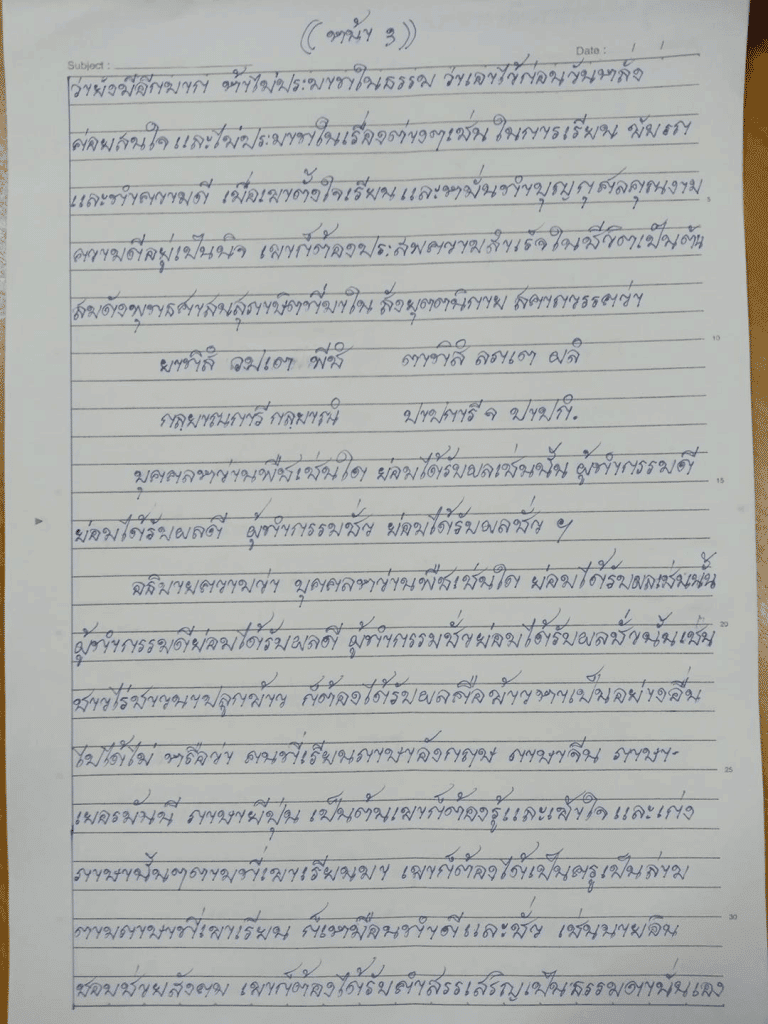 ((หน้า 3))
Subject :
Date :
ว่ายังมีอีกมาก ถ้าไม่ประมาทในธรรม ว่าเอาไว้ก่อนวันหลัง
ค่อยสนใจ และไม่ประมาทในเรื่องต่างๆเช่น ในการเรียน
และทำความดี เมื่อเขาตั้งใจเรียน และหมั่นทำบุญกุศลคุณงาม
ความดีอยู่เป็นนิจ เขาก็ต้องประสพความสำเร็จในชีวิตเป็นต้น
สมดังพุทธศาสนสุภาษิตที่มาใน สังยุตตนิกาย สคาถวรรคว่า
ยาทิสํ วปเต พีชํ ตาทิสํ ลภเต ผลํ
กลฺยาณการี กลฺยาณํ ปาปการี จ ปาปกํ.
บุคคลหว่านพืชเช่นใด ย่อมได้รับผลเช่นนั้น ผู้ทำกรรมดี
ย่อมได้รับผลดี ผู้ทำกรรมชั่ว ย่อมได้รับผลชั่ว ฯ
อธิบายความว่า บุคคลหว่านพืชเช่นใด ย่อมได้รับผลเช่นนั้น
ผู้ทำกรรมดีย่อมได้รับผลดี ผู้ทำกรรมชั่วย่อมได้รับผลชั่วนั้นเช่น
ชาวไร่ชาวนาปลูกข้าว ก็ต้องได้รับผลคือข้าวหาเป็นอย่างอื่น
ไปได้ไม่ หรือว่า คนที่เรียนภาษาอังกฤษ ภาษาจีน ภาษา-
เยอรมันนี ภาษายี่ปุ่น เป็นต้นเขาก็ต้องรู้และเข้าใจ และเก่ง
ภาษานั้นๆตามที่เขาเรียนมา เขาก็ต้องได้เป็นครูเป็นล่าม
ตามภาษาที่เขาเรียน ก็เหมือนทำดีและชั่ว เช่นนายอิน
ชอบช่วยสังคม เขาก็ต้องได้รับคำสรรเสริญเป็นธรรมดานั่นเอง
5
10
15
20
25
30